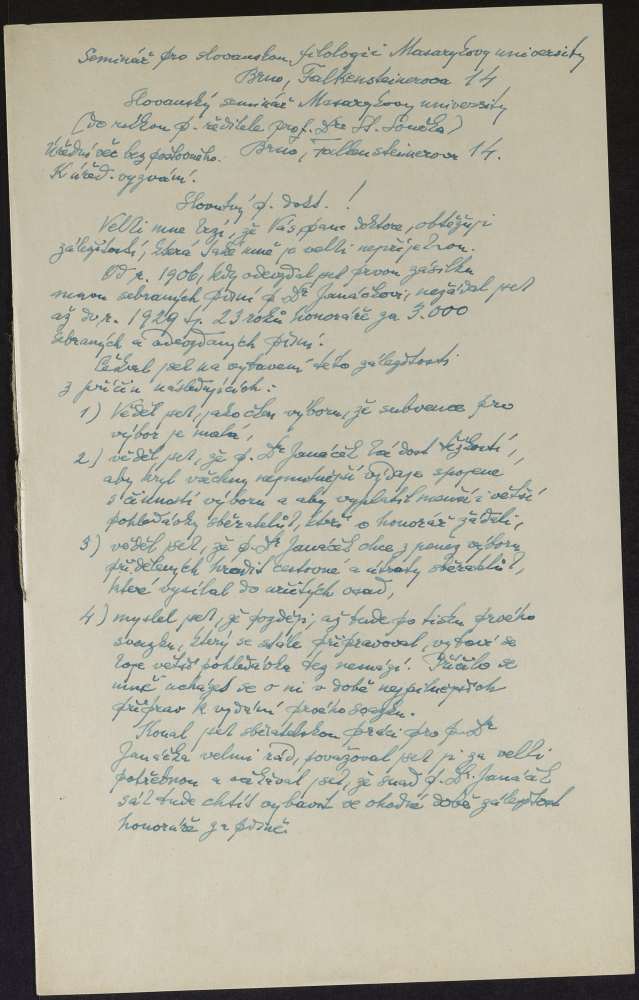 Seminář pro slovanskou filologii Masarykovy university
Brno, Falkensteinerova 14
Slovanský seminář Masarykovy university
(do rukou p. ředitele prof. Dra St. Součka)
Úřední věc bez poštovného. Brno, Falkensteinerova 14.
K úřed. vyzvání.
Slovutný p. dokt. !
Velli mne mrzí, že Vás, pane doktore, obtěžuji
záležitostí, která také mně je velli nepříjemnou.
Od r. 1906, kdy odevzdal jset prvou zásilku
mnou sebraných písní p. Dr Janáčkovi, nežádal jset
až do r. 1929 tj. 23 roků honoráře za 3.000
sebraných a odevzdaných písní.
Čekal jset na vybavení této záležitosti
z příčin následujících:
1) Věděl jset, jako člen výboru, že subvence pro
výbor je malá,
2) věděl jset, že p. Dr Janáček má dost těžkostí,
aby kryl všechny nejnutnější výdaje spojené
s činností výboru a aby vyplatil menší i větší
pohledávky sběratelů, kteří o honorář žádali,
3) věděl jset, že p. Dr Janáček chce z peněz výboru
přidělených hradit cestovné a útraty sběratelů,
které vysílal do určitých osad,
4) myslel jset, že později, až bude po tisku prvého
svazku, který se stále připravoval, vybaví se
moje větší pohledávka bez nesnází. Příčilo se
mně ucházet se o ni v době nejpilnějších
příprav k vydání prvého svazku.
Konal jset sběratelskou práci pro p. Dr
Janáčka velmi rád, považoval jset ji za velli
potřebnou a očekával jset, že snad p. Dr. Janáček
sám bude chtít vybavit ve vhodné době záležitost
honoráře za písně.